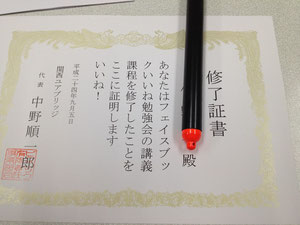 修了証書
殿
あなたはフェイスブッ
クいいね勉強会の講義
課程を修了したことを
ここに証明します
いいね！
平成二十四年九月五日
関西ユアブリッジ
代表 中野順一郎